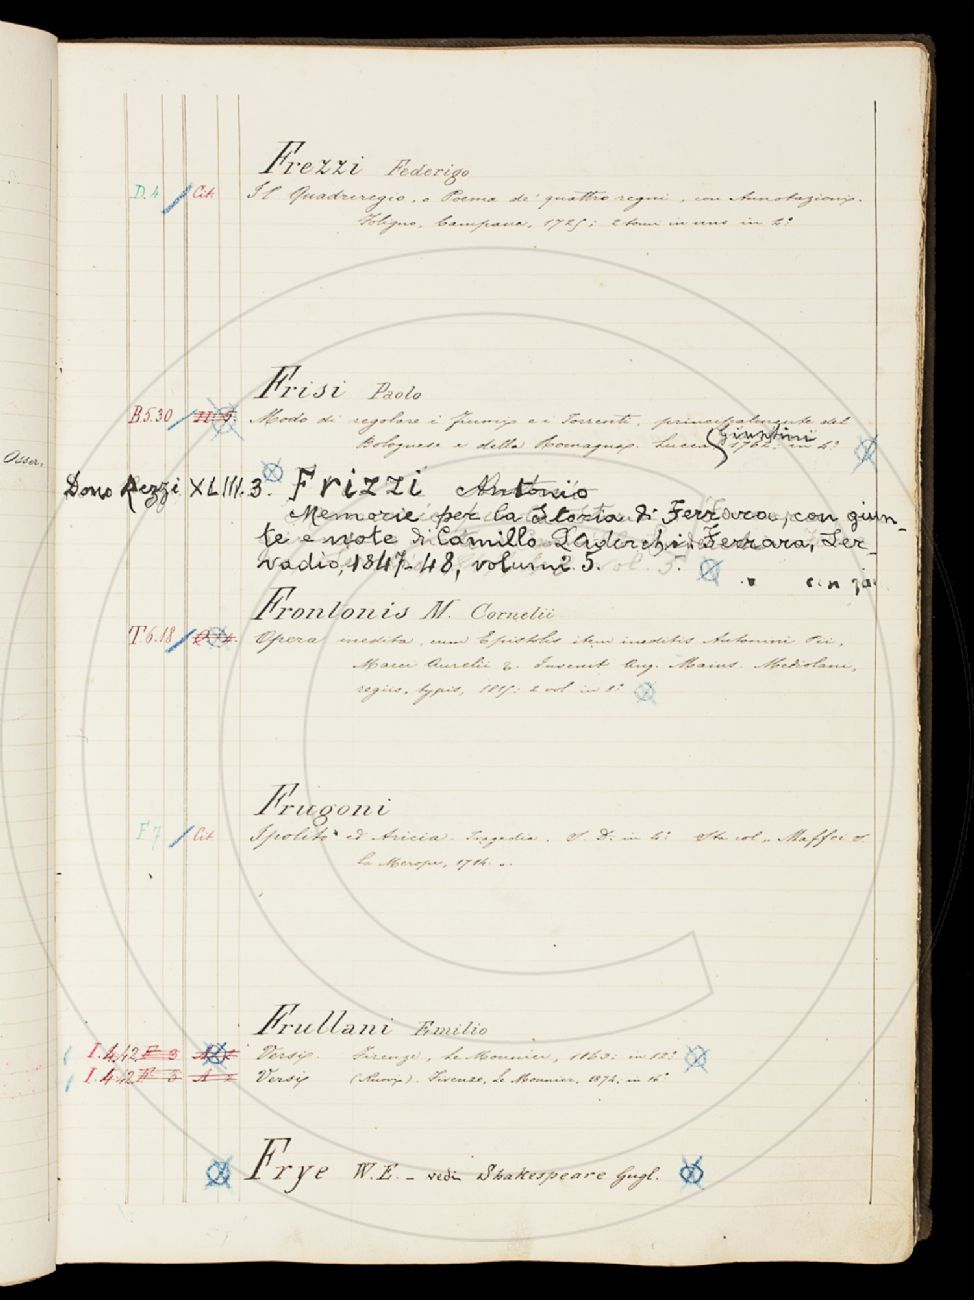 Frezzi Federigo
D. 4 Cit. Il Quadriregio, o Poema de' quattro regni, con Annotazioni.
Foligno, Campana, 1725; 2 tomi in uno in 4.º
Frisi Paolo
B.5.30 Modo di regolare i Fiumi, e i Torrenti, principalmente del
Bolognese e della Romagna. Lucca (Giuntini) 1762. in 4.º
Osser.
Dono Rezzi XLIII. 3. Frizzi Antonio
Memorie per la Storia di Ferrara, con giun-
te e note di Camillo Laderchi. Ferrara, Ser-
vadio, 1847-48, volumi 5.
Frontonis M. Cornelii
T.6.18 Opera inedita, cum Epistolis item ineditis Antonini Pii,
Marci Aurelii &. Invenit Ang. Maius. Mediolani,
regiis, typis, 1815: 2 vol. in 8.º
Frugoni
F 7 Cit. Ipolito ed Aricia. Tragedia. S. D. in 4.º Sta col Maffei S.
la Merope, 1714.
Frullani Emilio
I.4.42 Versi. Firenze, Le Monnier, 1863: in 12.º
I.4.42 Versi (Nuovi). Firenze, Le Monnier, 1874, in 16º
Frye W.E. - vedi Shakespeare Gugl.